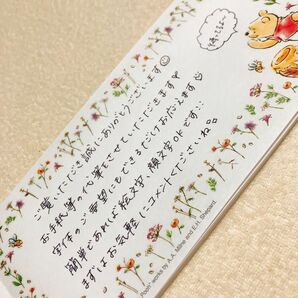 ご覧いただき誠にありがとうございます
お手紙等の代筆をさせていただきます
字体のご希望にもできるだけおこたえします
簡単であれば絵文字、顔文字OKです…
まずはお気軽にコメントくださいね。
Pooh" works by A.A. Milne and E.H. Shepard.